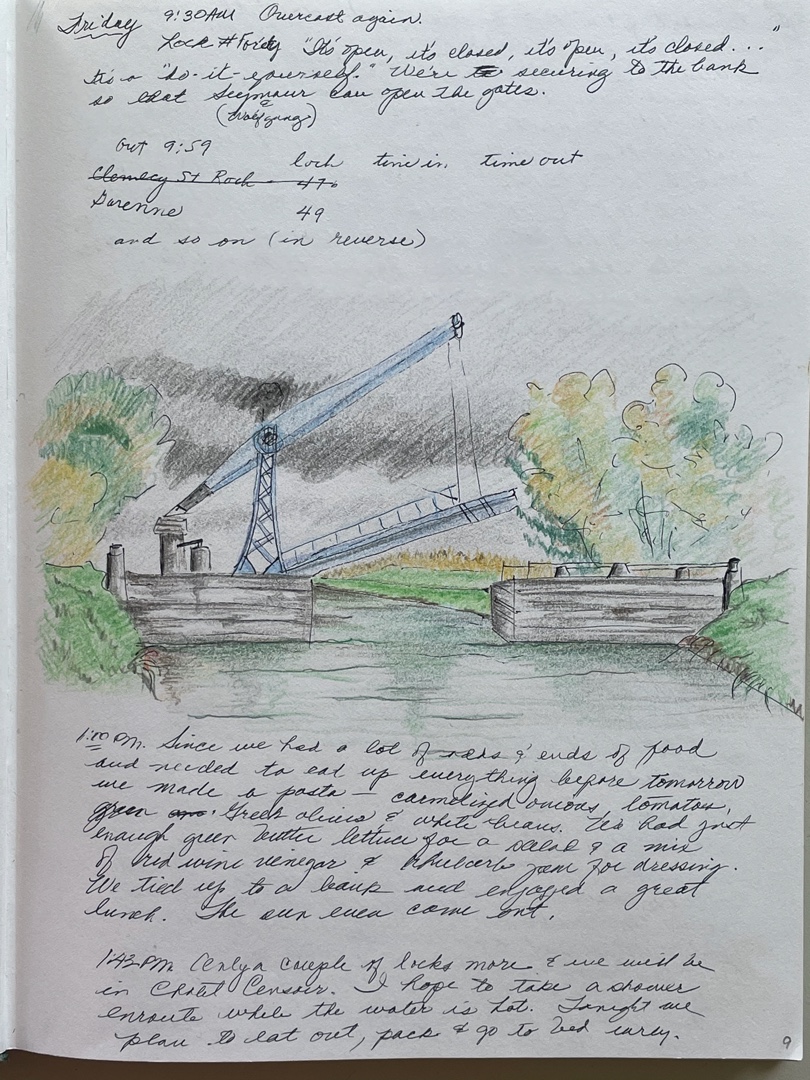 Friday 9:30AM Overcast again.
Lock #Forty "It's open, it's closed, it's open, it's closed..."
It's a "do-it-yourself." We're securing to the bank
so that Seymour can open the gates.
(Wolfgang)
Out 9:59
lock time in, time out
Clamecy St Roch - 47.
Garenne 49
and so on (in reverse)
1:10 PM. Since we had a lot of odds & ends of food
and needed to eat up everything before tomorrow
we made a pasta — carmelized onions, tomatoes,
green Greek olives & white beans. We had just
enough green butter lettuce for a salad & a mix
of red wine venegar & rhubarb jam for dressing.
We tied up to a bank and enjoyed a great
lunch. The sun even come out.
1:43 PM Only a couple of locks more & we will be
in Chatel Censoir. I hope to take a shower
enroute while the water is hot. Tonight we
plan to eat out, pack & go to bed early.
9